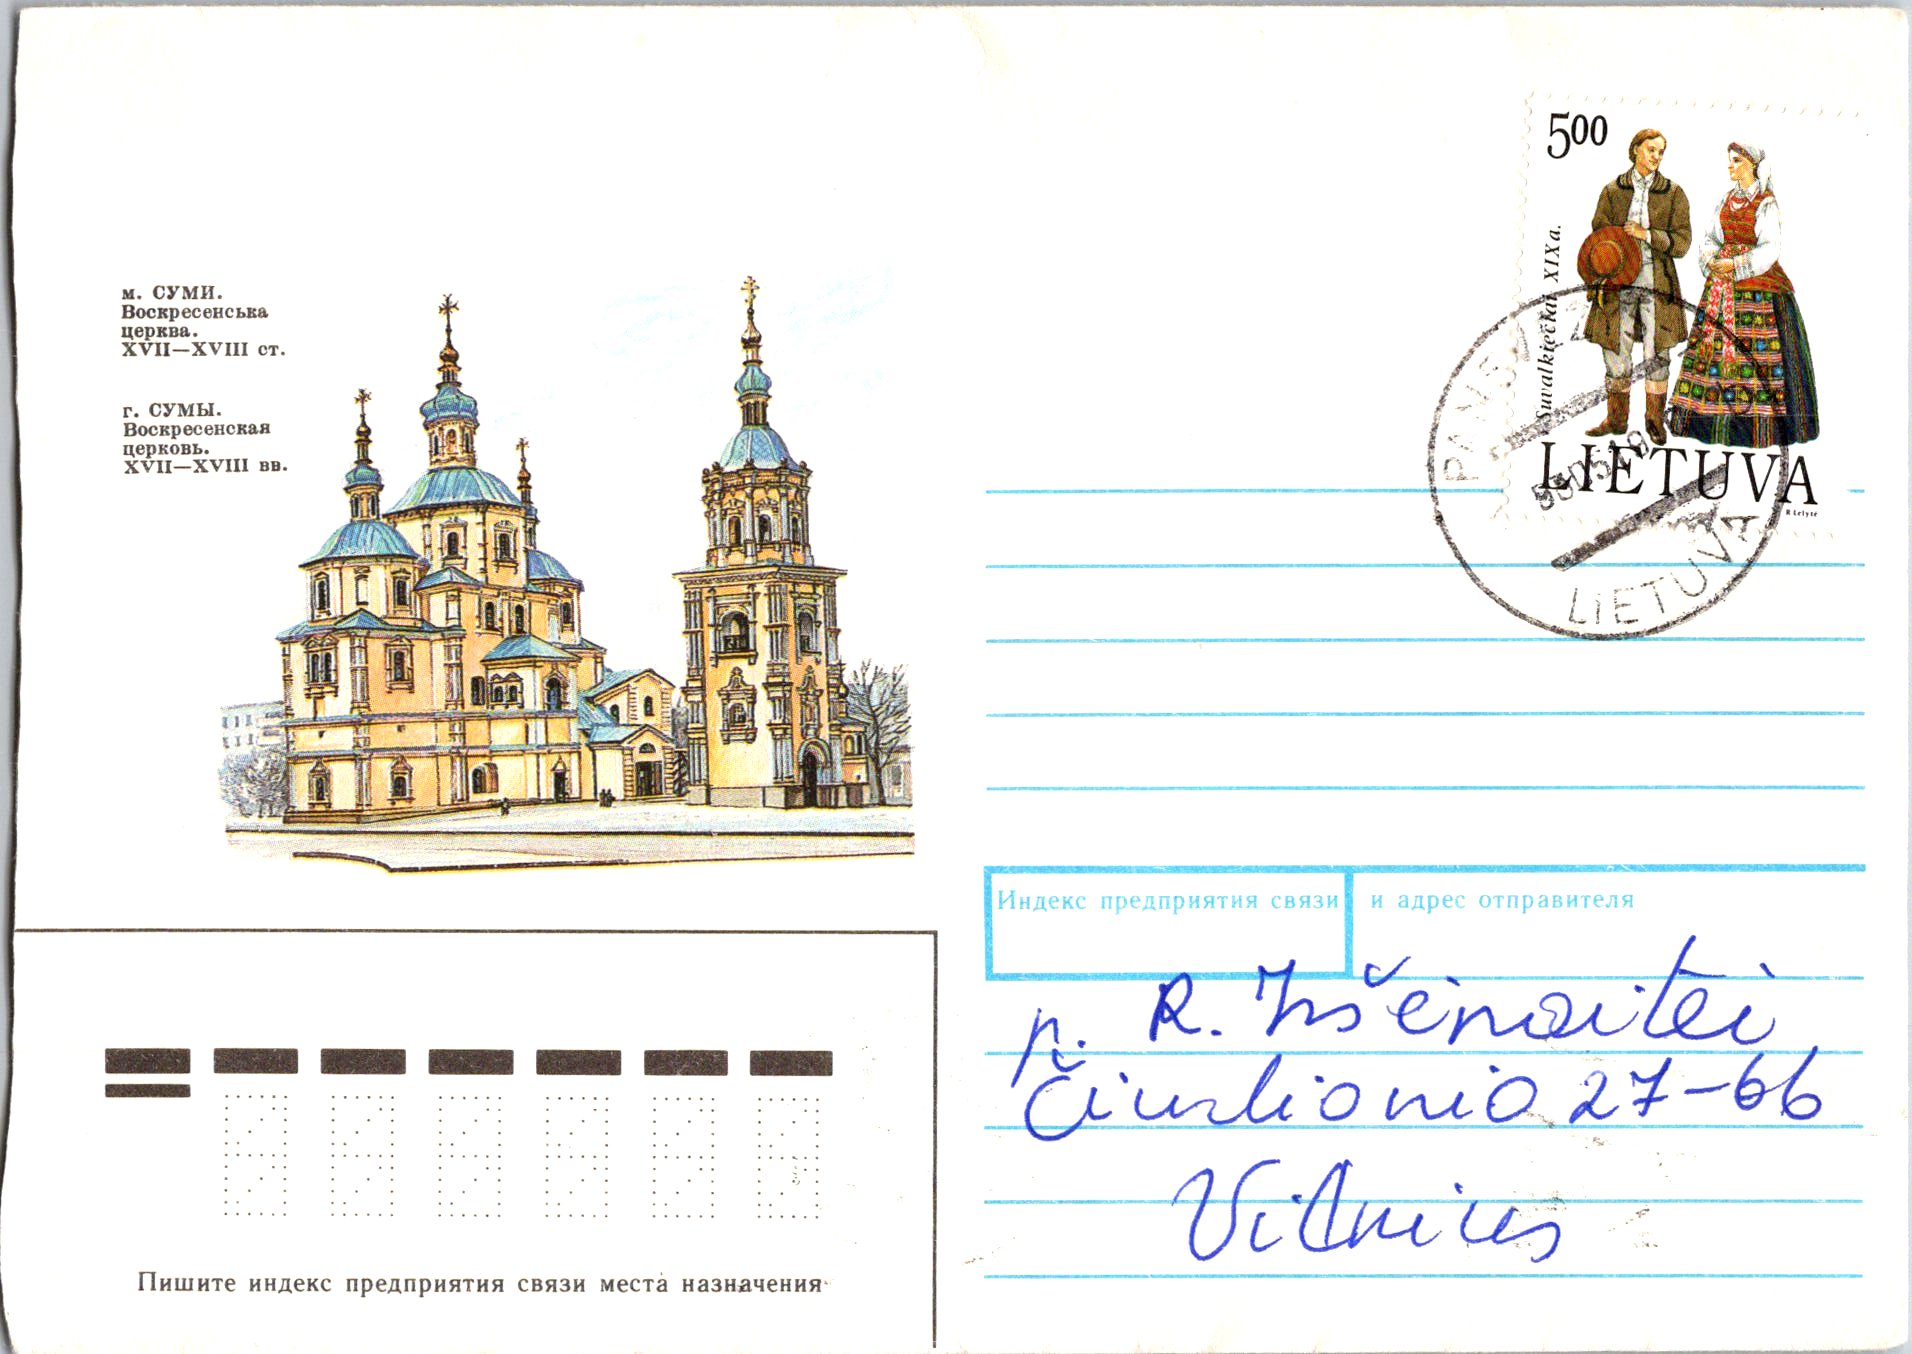 м. СУМИ.
Воскресенська
церква.
XVII—XVIII ст.
г. СУМЫ.
Воскресенская
церковь.
XVII—XVIII вв.
500
Suvalkiečiai XIXa.
LIETUVA
R Lelytė
LIETUVA
Индекс предприятия связи и адрес отправителя
p. R. Iršėnaitei
Čiurlionio 27-66
Vilnius
Пишите индекс предприятия связи места назначения